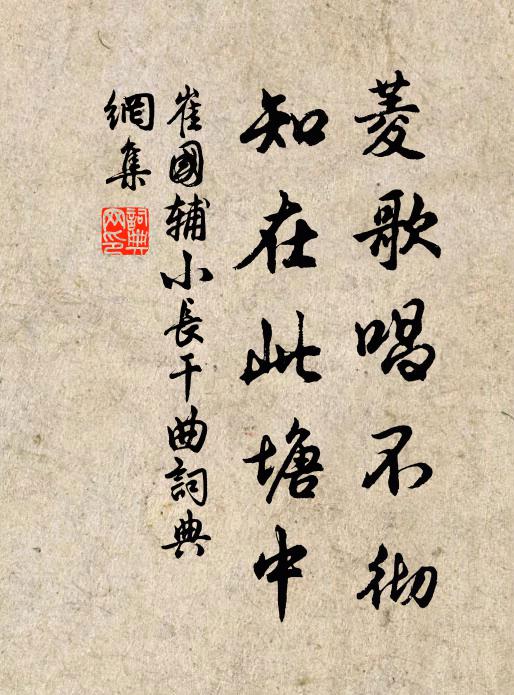 菱歌唱不彻
知在此塘中
崔國辅小長干曲詞典
網集
詞典
网印